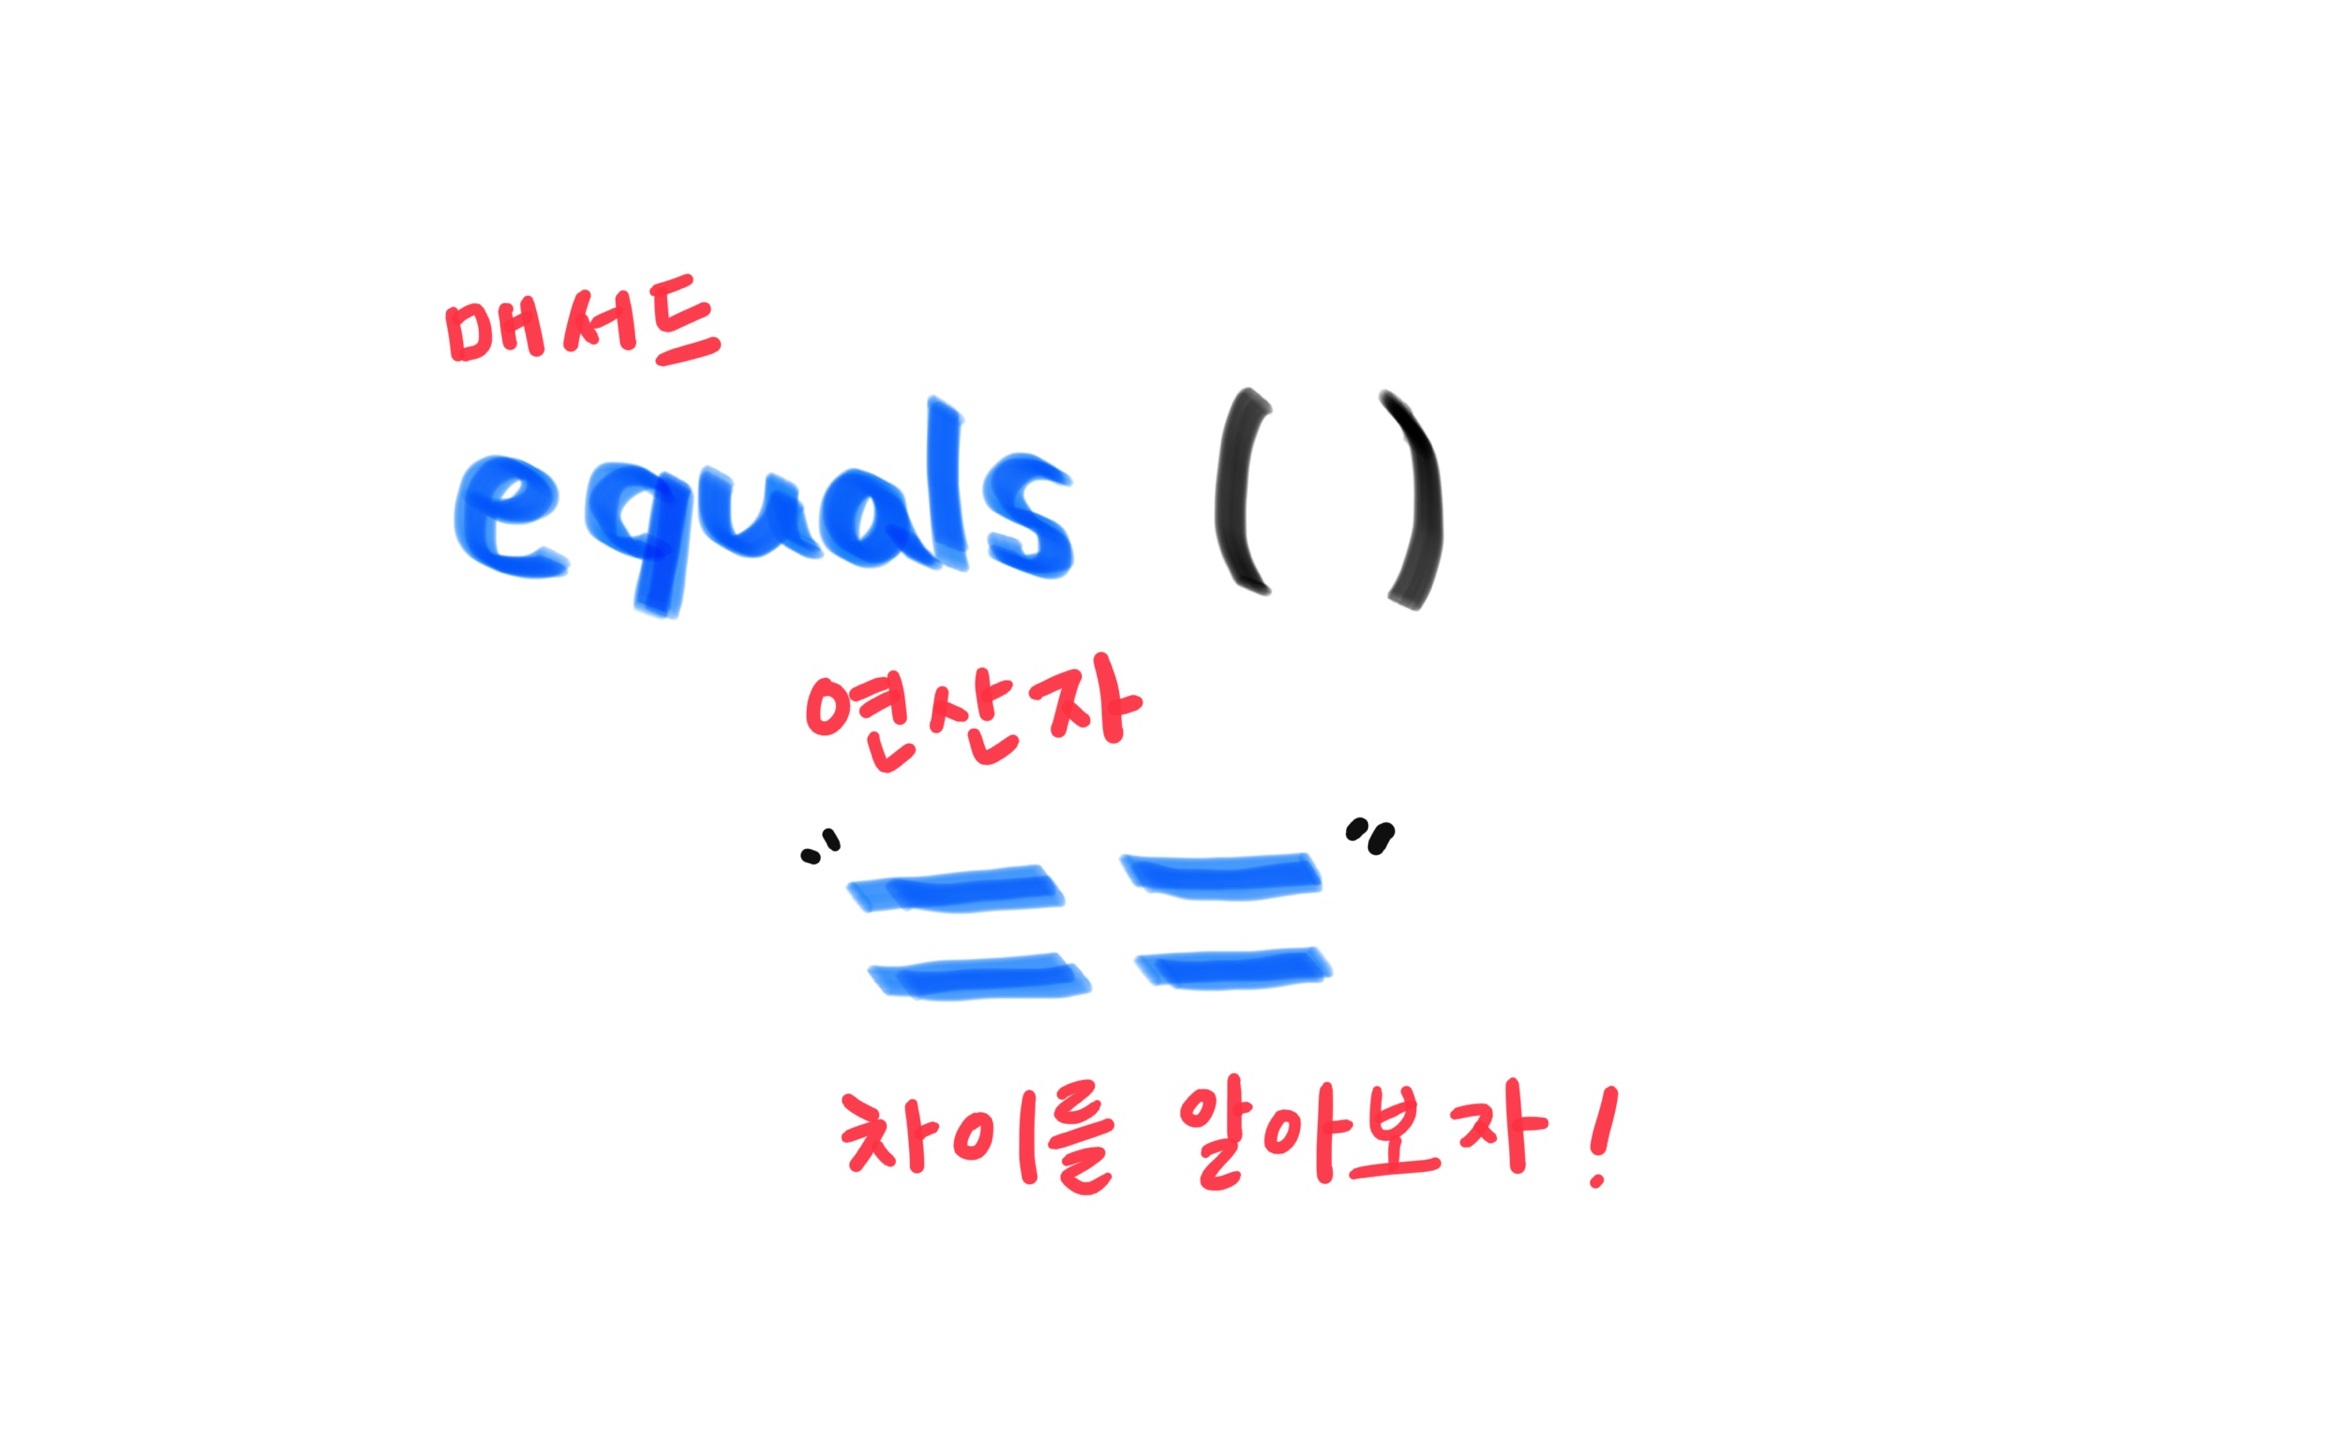 매서드
equals ( )
연산자
" == "
차이를 알아보자!